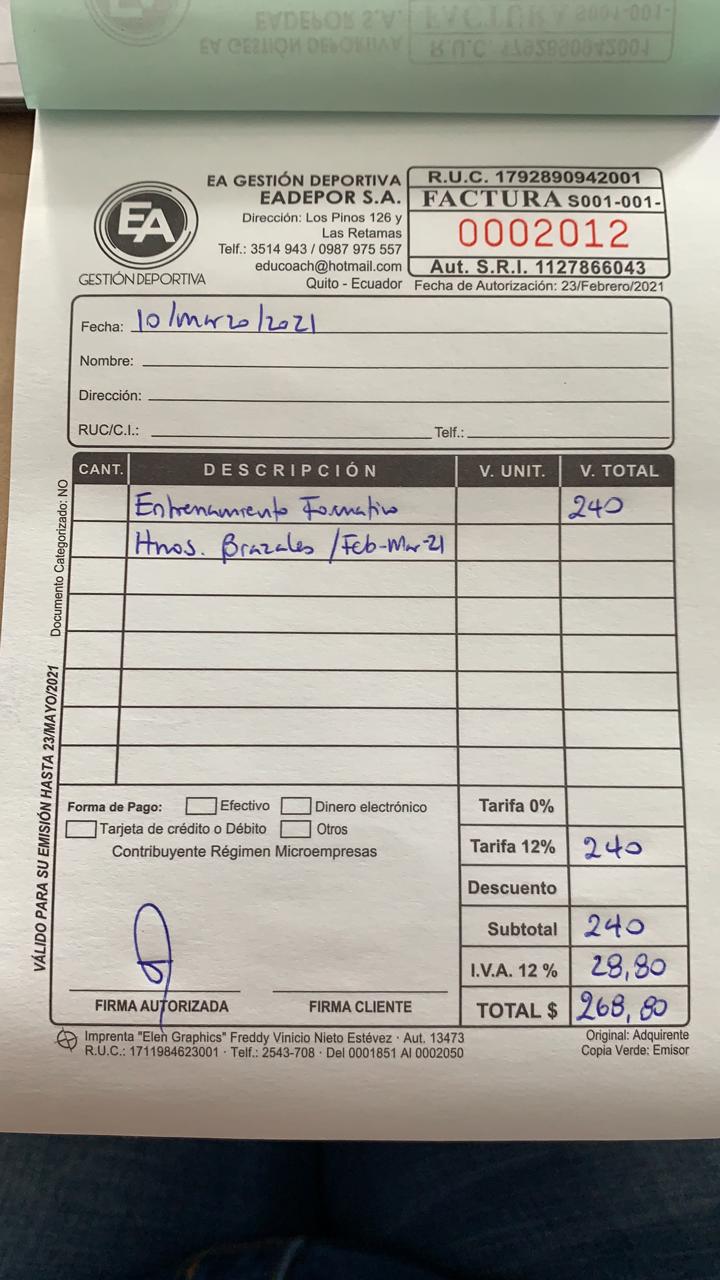 EADEPOR S.A. FACTURA S001-001-
EA GESTIÓN DEPORTIVA R.U.C. 1792890942001
EA
GESTIÓN DEPORTIVA
EA GESTIÓN DEPORTIVA
EADEPOR S.A.
Dirección: Los Pinos 126 y
Las Retamas
Telf.: 3514 943 / 0987 975 557
educoach@hotmail.com
Quito - Ecuador
R.U.C. 1792890942001
FACTURA S001-001-
0002012
Aut. S.R.I. 1127866043
Fecha de Autorización: 23/Febrero/2021
Fecha: 10/marzo/2021
Nombre:
Dirección:
RUC/C.I.: Telf.:
CANT. DESCRIPCIÓN V. UNIT. V. TOTAL
Entrenamiento Formativo 240
Hnos. Brazales /Feb-Mar-21
Documento Categorizado: NO
VÁLIDO PARA SU EMISIÓN HASTA 23/MAYO/2021
Forma de Pago: Efectivo Dinero electrónico
Tarjeta de crédito o Débito Otros
Contribuyente Régimen Microempresas
Tarifa 0%
Tarifa 12% 240
Descuento
Subtotal 240
I.V.A. 12 % 28,80
TOTAL $ 268,80
FIRMA AUTORIZADA FIRMA CLIENTE
Imprenta "Elen Graphics" Freddy Vinicio Nieto Estévez · Aut. 13473
R.U.C.: 1711984623001 · Telf.: 2543-708 · Del 0001851 Al 0002050
Original: Adquirente
Copia Verde: Emisor